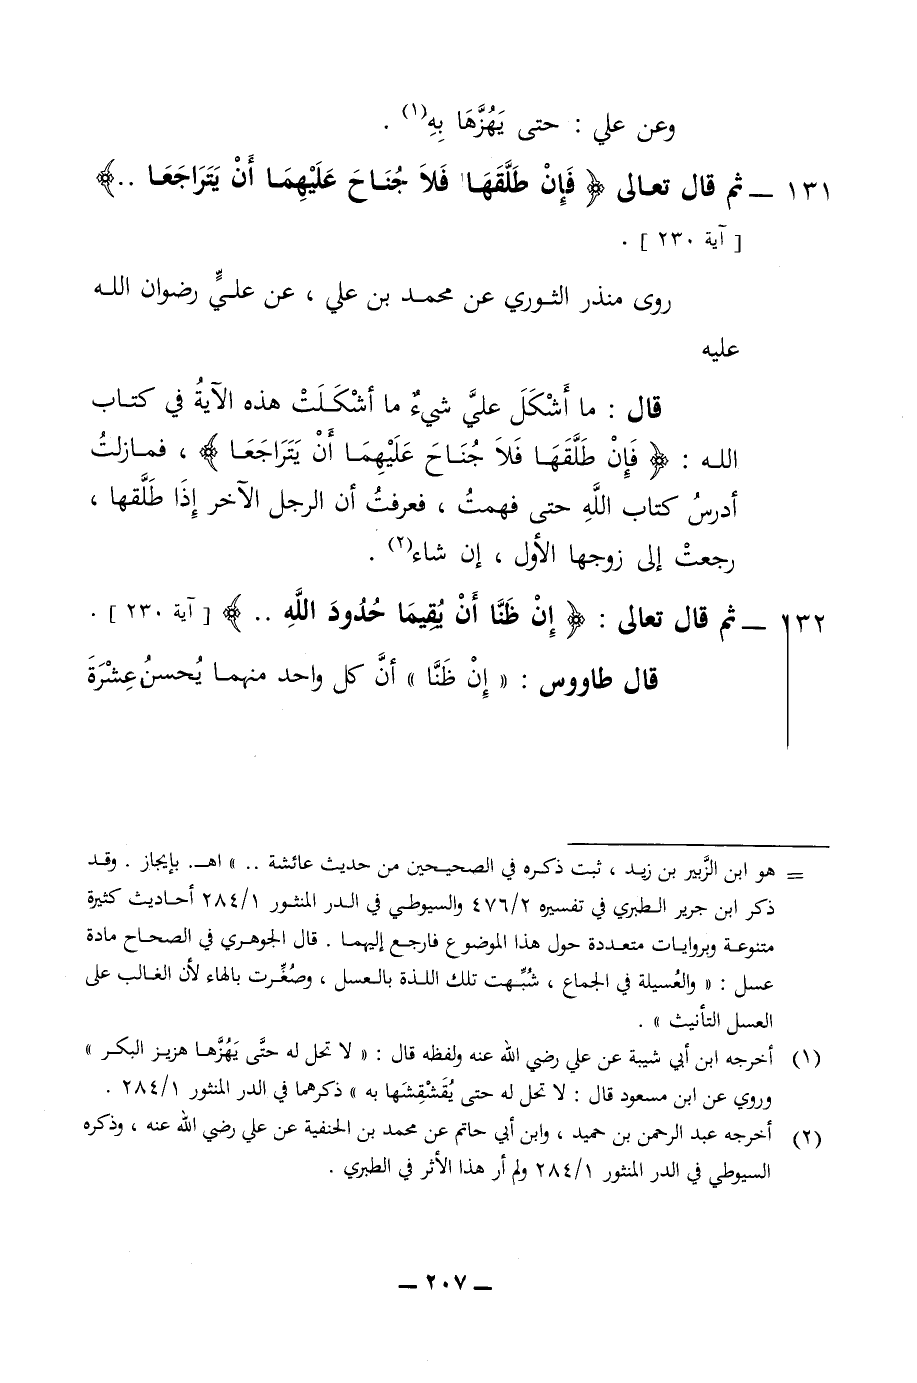 وعن علي : حتى يَهُزَّهَا بِهِ(١) .
١٣١ ــ ثم قال تعالى ﴿ فَإِنْ طَلَّقَهَا فَلاَ جُنَاحَ عَلَيْهِمَا أَنْ يَتَرَاجَعَا ..﴾
[ آية ٢٣٠ ] .
روى منذر الثوري عن محمد بن علي ، عن عليٍّ رضوان الله
عليه
قال : ما أَشْكَلَ عليَّ شيءٌ ما أشْكَلَتْ هذه الآيةُ في كتاب
الله : ﴿ فَإِنْ طَلَّقَهَا فَلاَ جُنَاحَ عَلَيْهِمَا أَنْ يَتَرَاجَعَا ﴾ ، فمازلتُ
أدرسُ كتاب اللَّهِ حتى فهمتُ ، فعرفتُ أن الرجل الآخر إذَا طَلَّقها ،
رجعتْ إلى زوجها الأول ، إن شاء(٢) .
١٣٢ ــ ثم قال تعالى : ﴿ إِنْ ظَنَّا أَنْ يُقِيمَا حُدُودَ اللَّهِ .. ﴾ [ آية ٢٣٠ ] .
قال طاووس : « إِنْ ظَنَّا » أنَّ كل واحد منهما يُحسنُ عِشْرَةَ
= هو ابن الزَّبير بن زيد ، ثبت ذكره في الصحيحين من حديث عائشة .. » اهـ. بإيجاز . وقد
ذكر ابن جرير الطبري في تفسيره ٤٧٦/٢ والسيوطي في الدر المنثور ٢٨٤/١ أحاديث كثيرة
متنوعة وبروايات متعددة حول هذا الموضوع فارجع إليهما . قال الجوهري في الصحاح مادة
عسل : « والعُسيلة في الجماع ، شُبِّهت تلك اللذة بالعسل ، وصُغِّرت بالهاء لأن الغالب على
العسل التأنيث » .
(١) أخرجه ابن أبي شيبة عن علي رضي الله عنه ولفظه قال : « لا تحل له حتَّى يَهُزَّها هزيز البكر »
وروي عن ابن مسعود قال : لا تحل له حتى يُقَشْقِشَها به » ذكرهما في الدر المنثور ٢٨٤/١ .
(٢) أخرجه عبد الرحمن بن حميد ، وابن أبي حاتم عن محمد بن الحنفية عن علي رضي الله عنه ، وذكره
السيوطي في الدر المنثور ٢٨٤/١ ولم أر هذا الأثر في الطبري .
ــ ٢٠٧ ــ